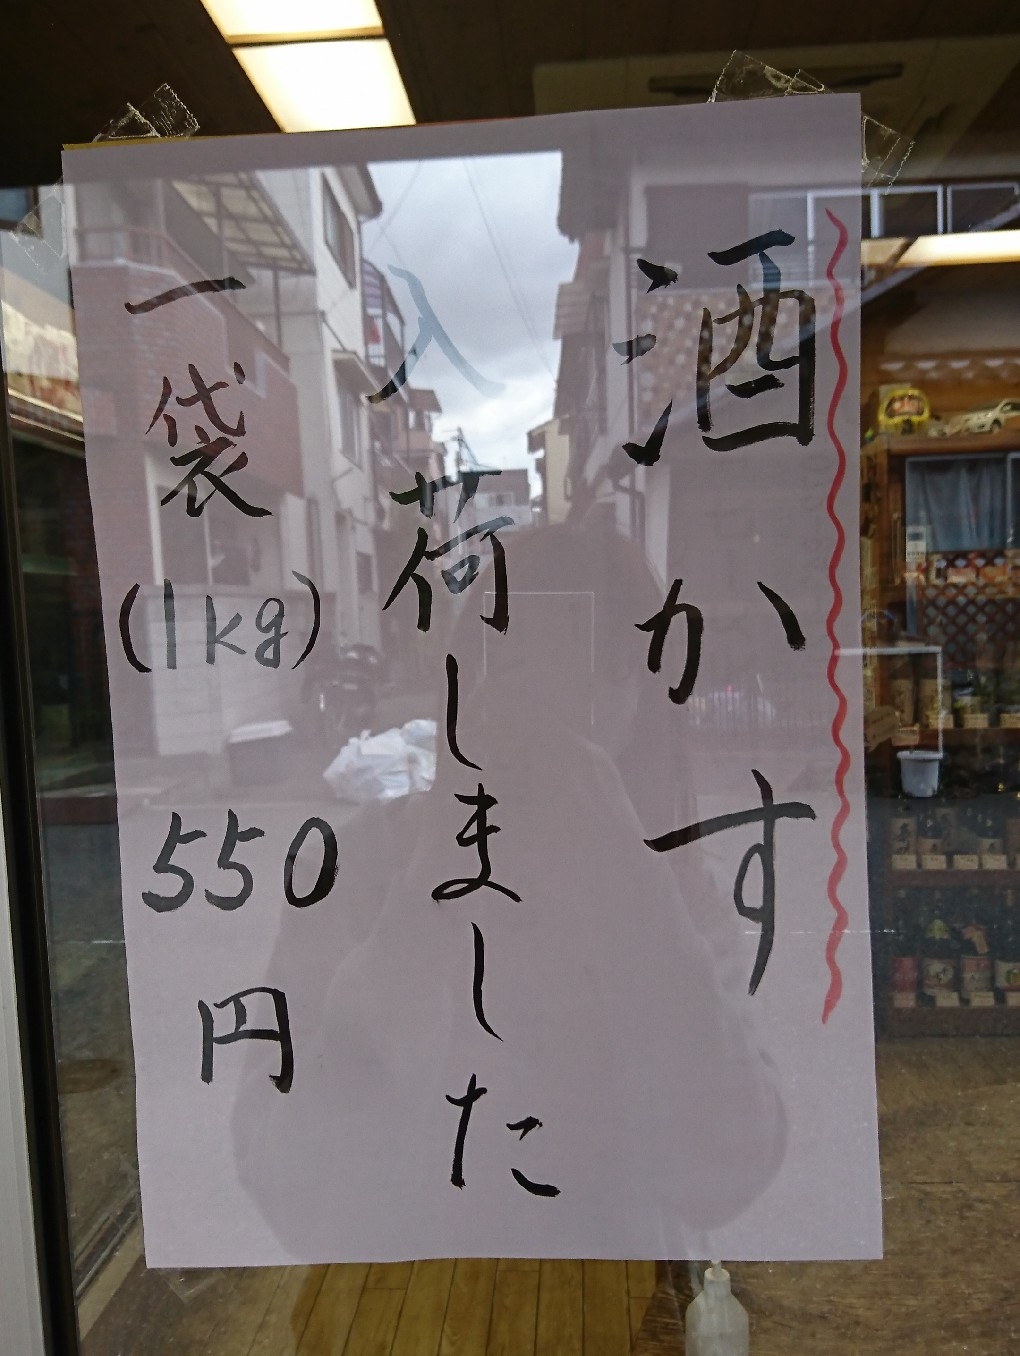 酒かす
入荷しました
一袋(1kg)550円